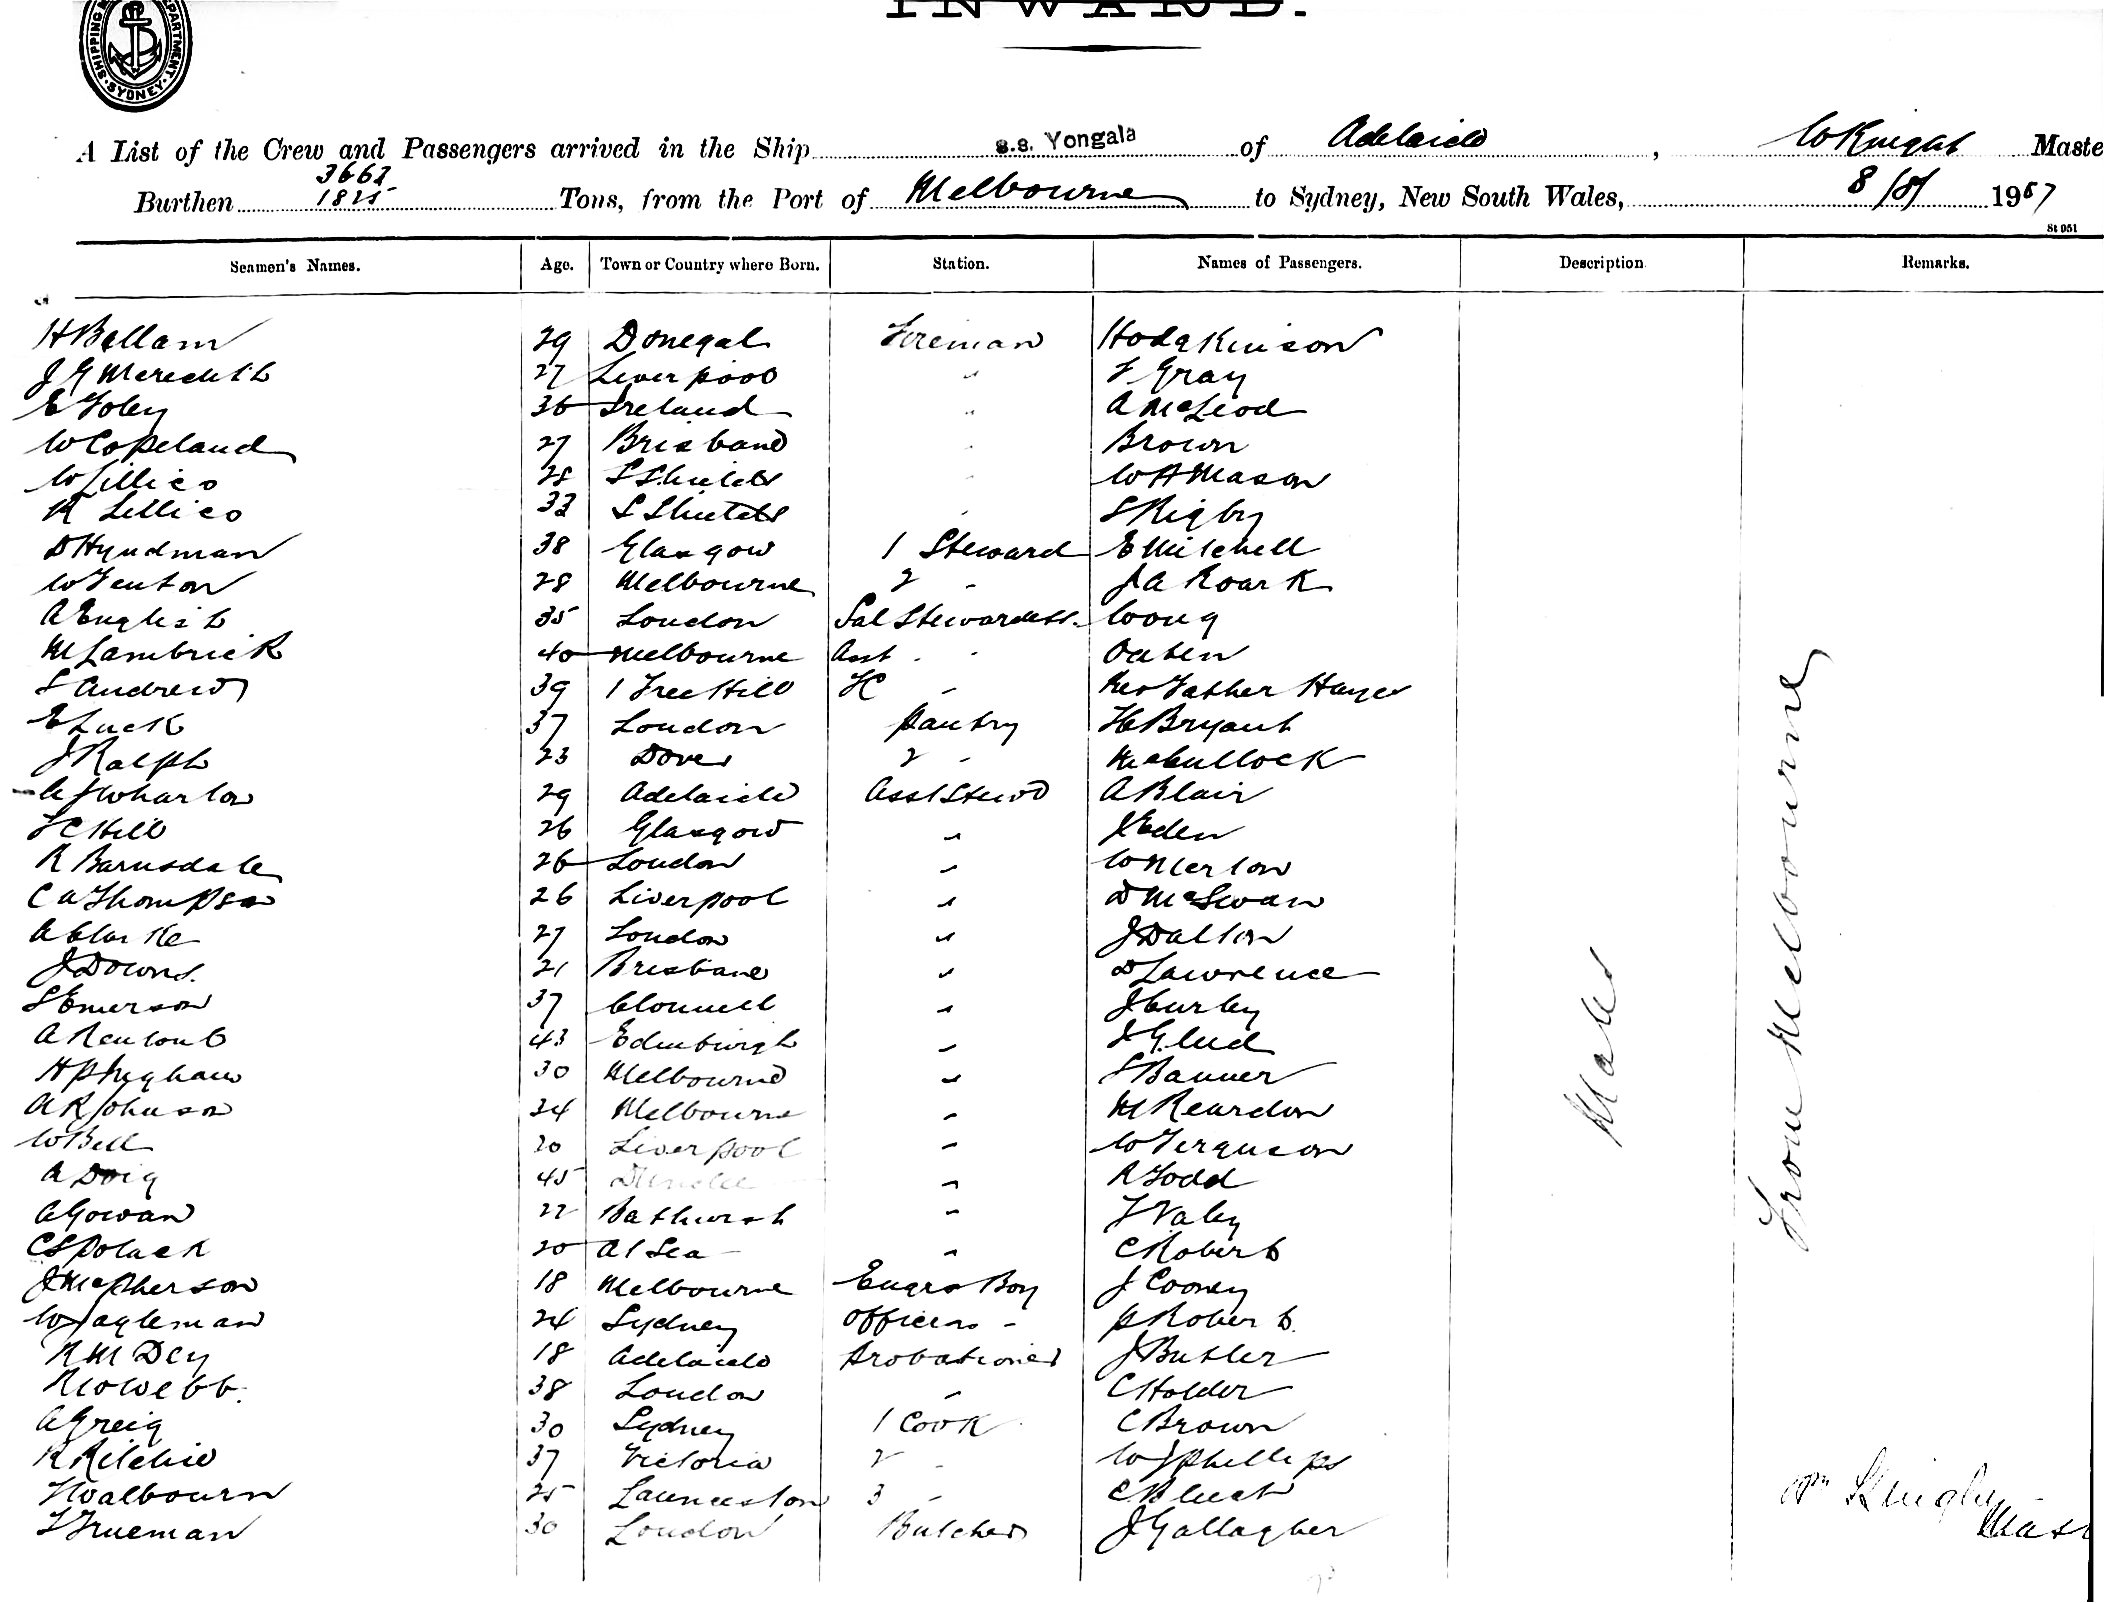 INWARD.
SHIPPING DEPARTMENT SYDNEY
A List of the Crew and Passengers arrived in the Ship s.s. Yongala of Adelaide, W Knight Maste
Burthen 3663 1825 Tons, from the Port of Melbourne to Sydney, New South Wales, 8/8/ 1907
St 051
Seamen's Names. Age. Town or Country where Born. Station. Names of Passengers. Description Remarks.
H Bellam 29 Donegal Fireman Hodgkinson
J G Meredith 27 Liverpool " F Gray
E Foley 36 Ireland " A McLeod
W Copeland 27 Brisbane " Brown
W Lillico 28 S Shields " W H Mason
R Lillico 33 S Shields " S Rigby
D Hyndman 38 Glasgow 1 Steward E Mitchell
W Fenton 28 Melbourne 2 " J A Roark
A English 35 London Sal Stewardess Wong
M Lambrick 40 Melbourne Asst " " Oaten
S Andrews 39 1 Tree Hill FC " Rev Father Hayes
E Luck 37 London Pantry H Bryant
J Ralph 23 Dover 2 " McCullock
A J Wharton 29 Adelaide Asst Stewd A Blair
F C Hill 26 Glasgow " J Eden
R Barnsdale 26 London " W Merton
C A Thompson 26 Liverpool " D McSwan
A Clarke 27 London " J Dalton
J Downs. 21 Brisbane " D Lawrence
S Emerson 37 Clonmell " J Curley
A 43 Edinburgh " J
H P 30 Melbourne " S Banner
A R Johnson 34 Melbourne " M Reardon
W Bell 20 Liverpool " W Ferguson
A Doig 45 Dundee " R Todd
A Gowan 22 Bathurst " F
C S Polack 20 At Sea " C Roberts
J McPherson 18 Melbourne Engrs Boy J Cooney
W Jagleman 24 Sydney Officers " P Roberts
R M Dey 18 Adelaide Probationer J Butler
Webb. 38 London " C Holder
A Greig 30 Sydney 1 Cook C Brown
R Ritchie 37 Victoria 2 " W J Phillips
F Walbourn 25 Launceston 3 " C
T Trueman 30 London Butcher J Gallagher
Males
From Melbourne
Wm Knight
Mast